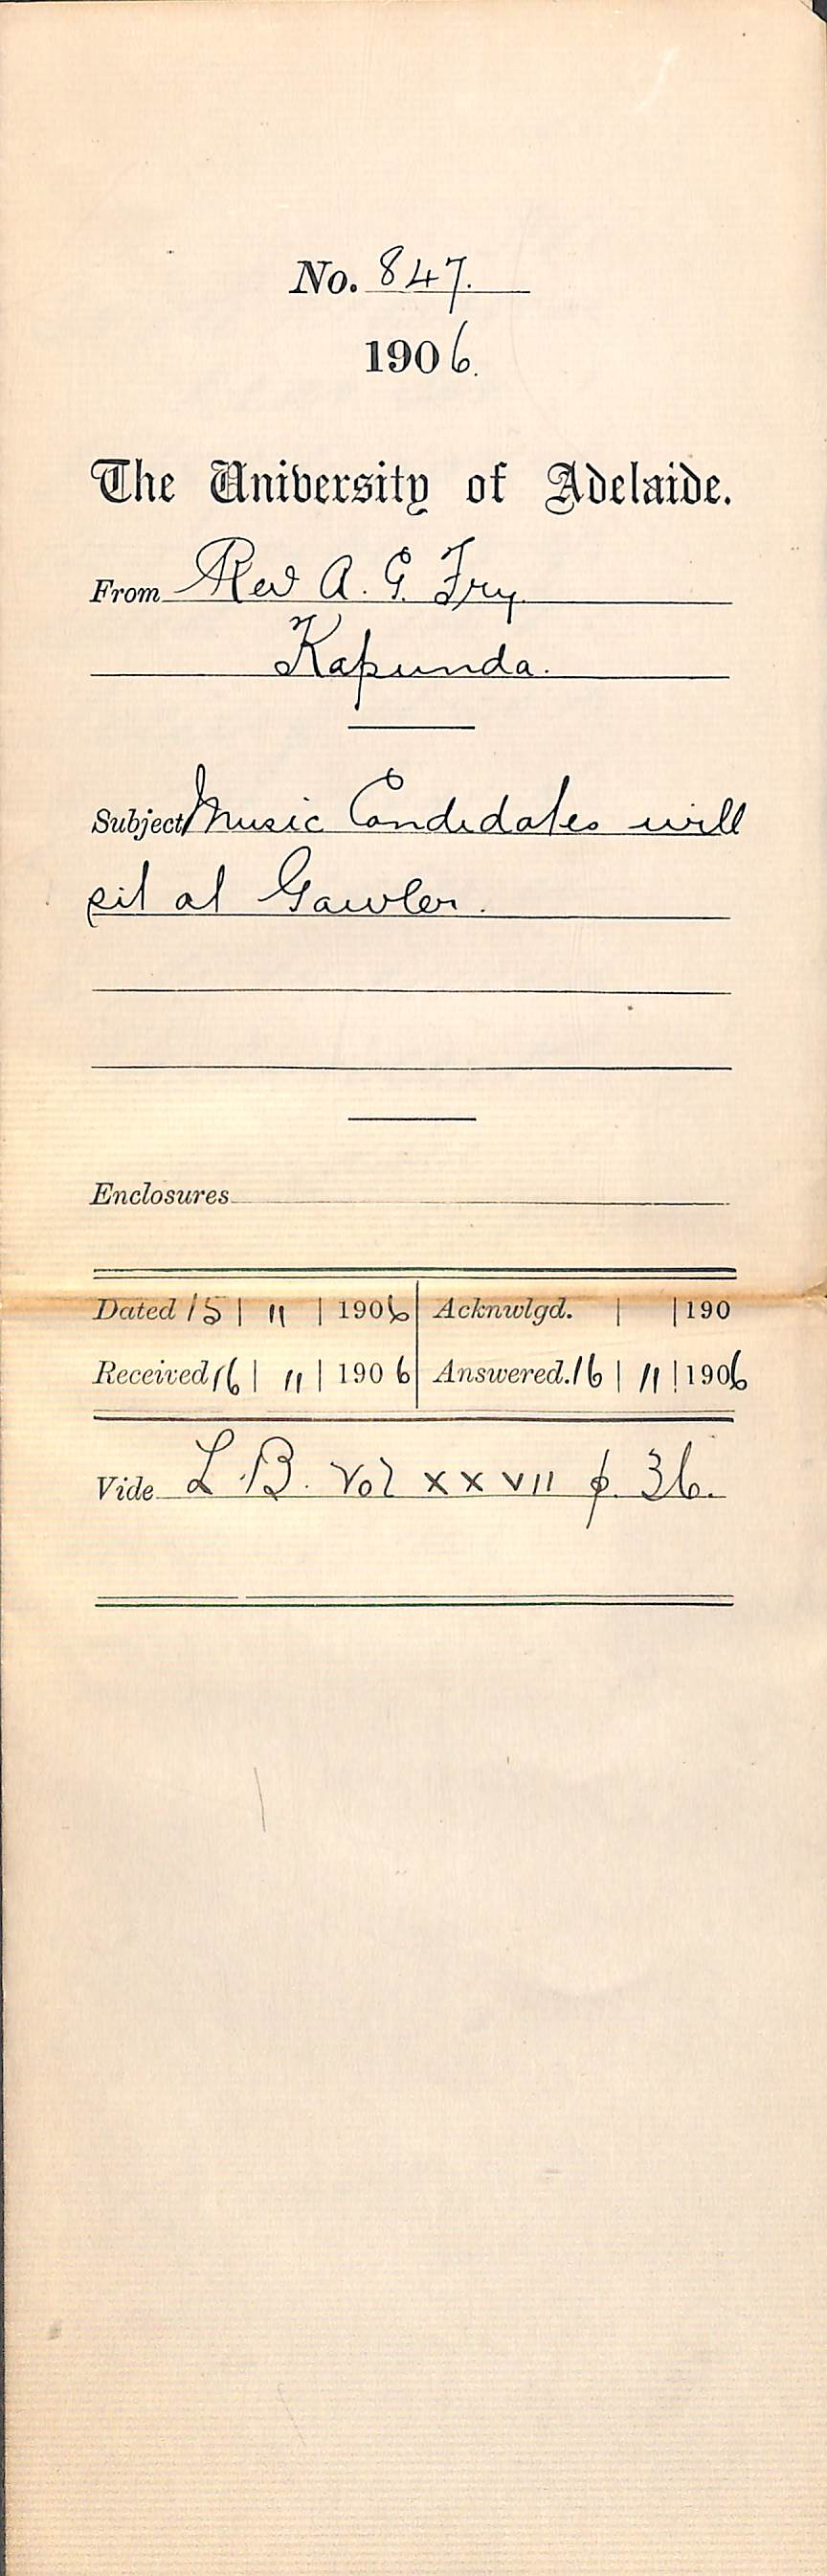 No. 847.
1906.
The University of Adelaide.
From Rev A. G. Fry
Kapunda.
Subject Music Candidates will
sit at Gawler.
Enclosures
Dated 15 | 11 | 1906 Acknwlgd. | | 190
Received 16 | 11 | 1906 Answered. 16 | 11 | 1906
Vide L.B. Vol XXVII p. 36.